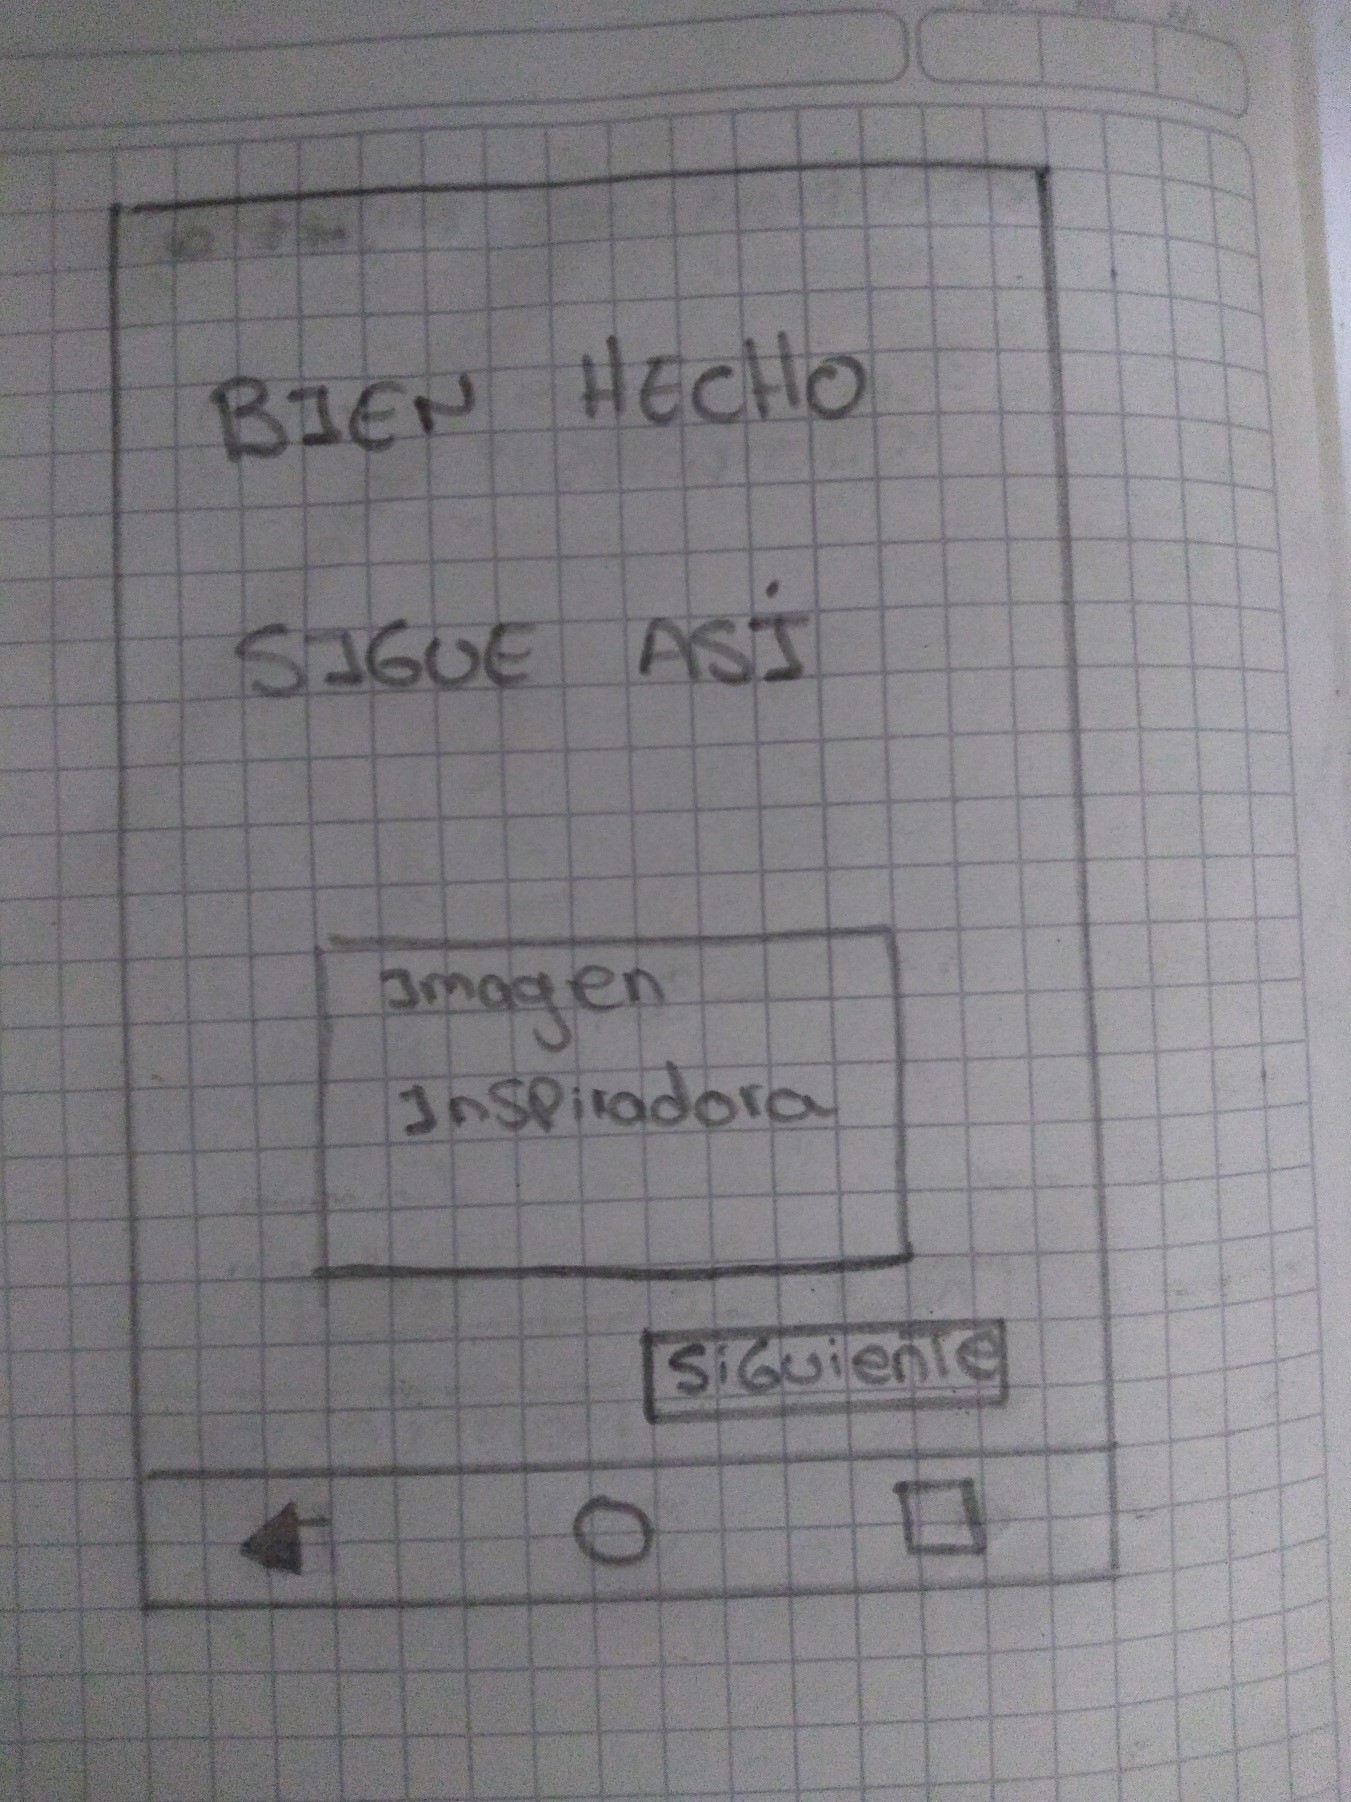 BIEN HECHO
SIGUE ASÍ
Imagen
Inspiradora
SiGuienTe